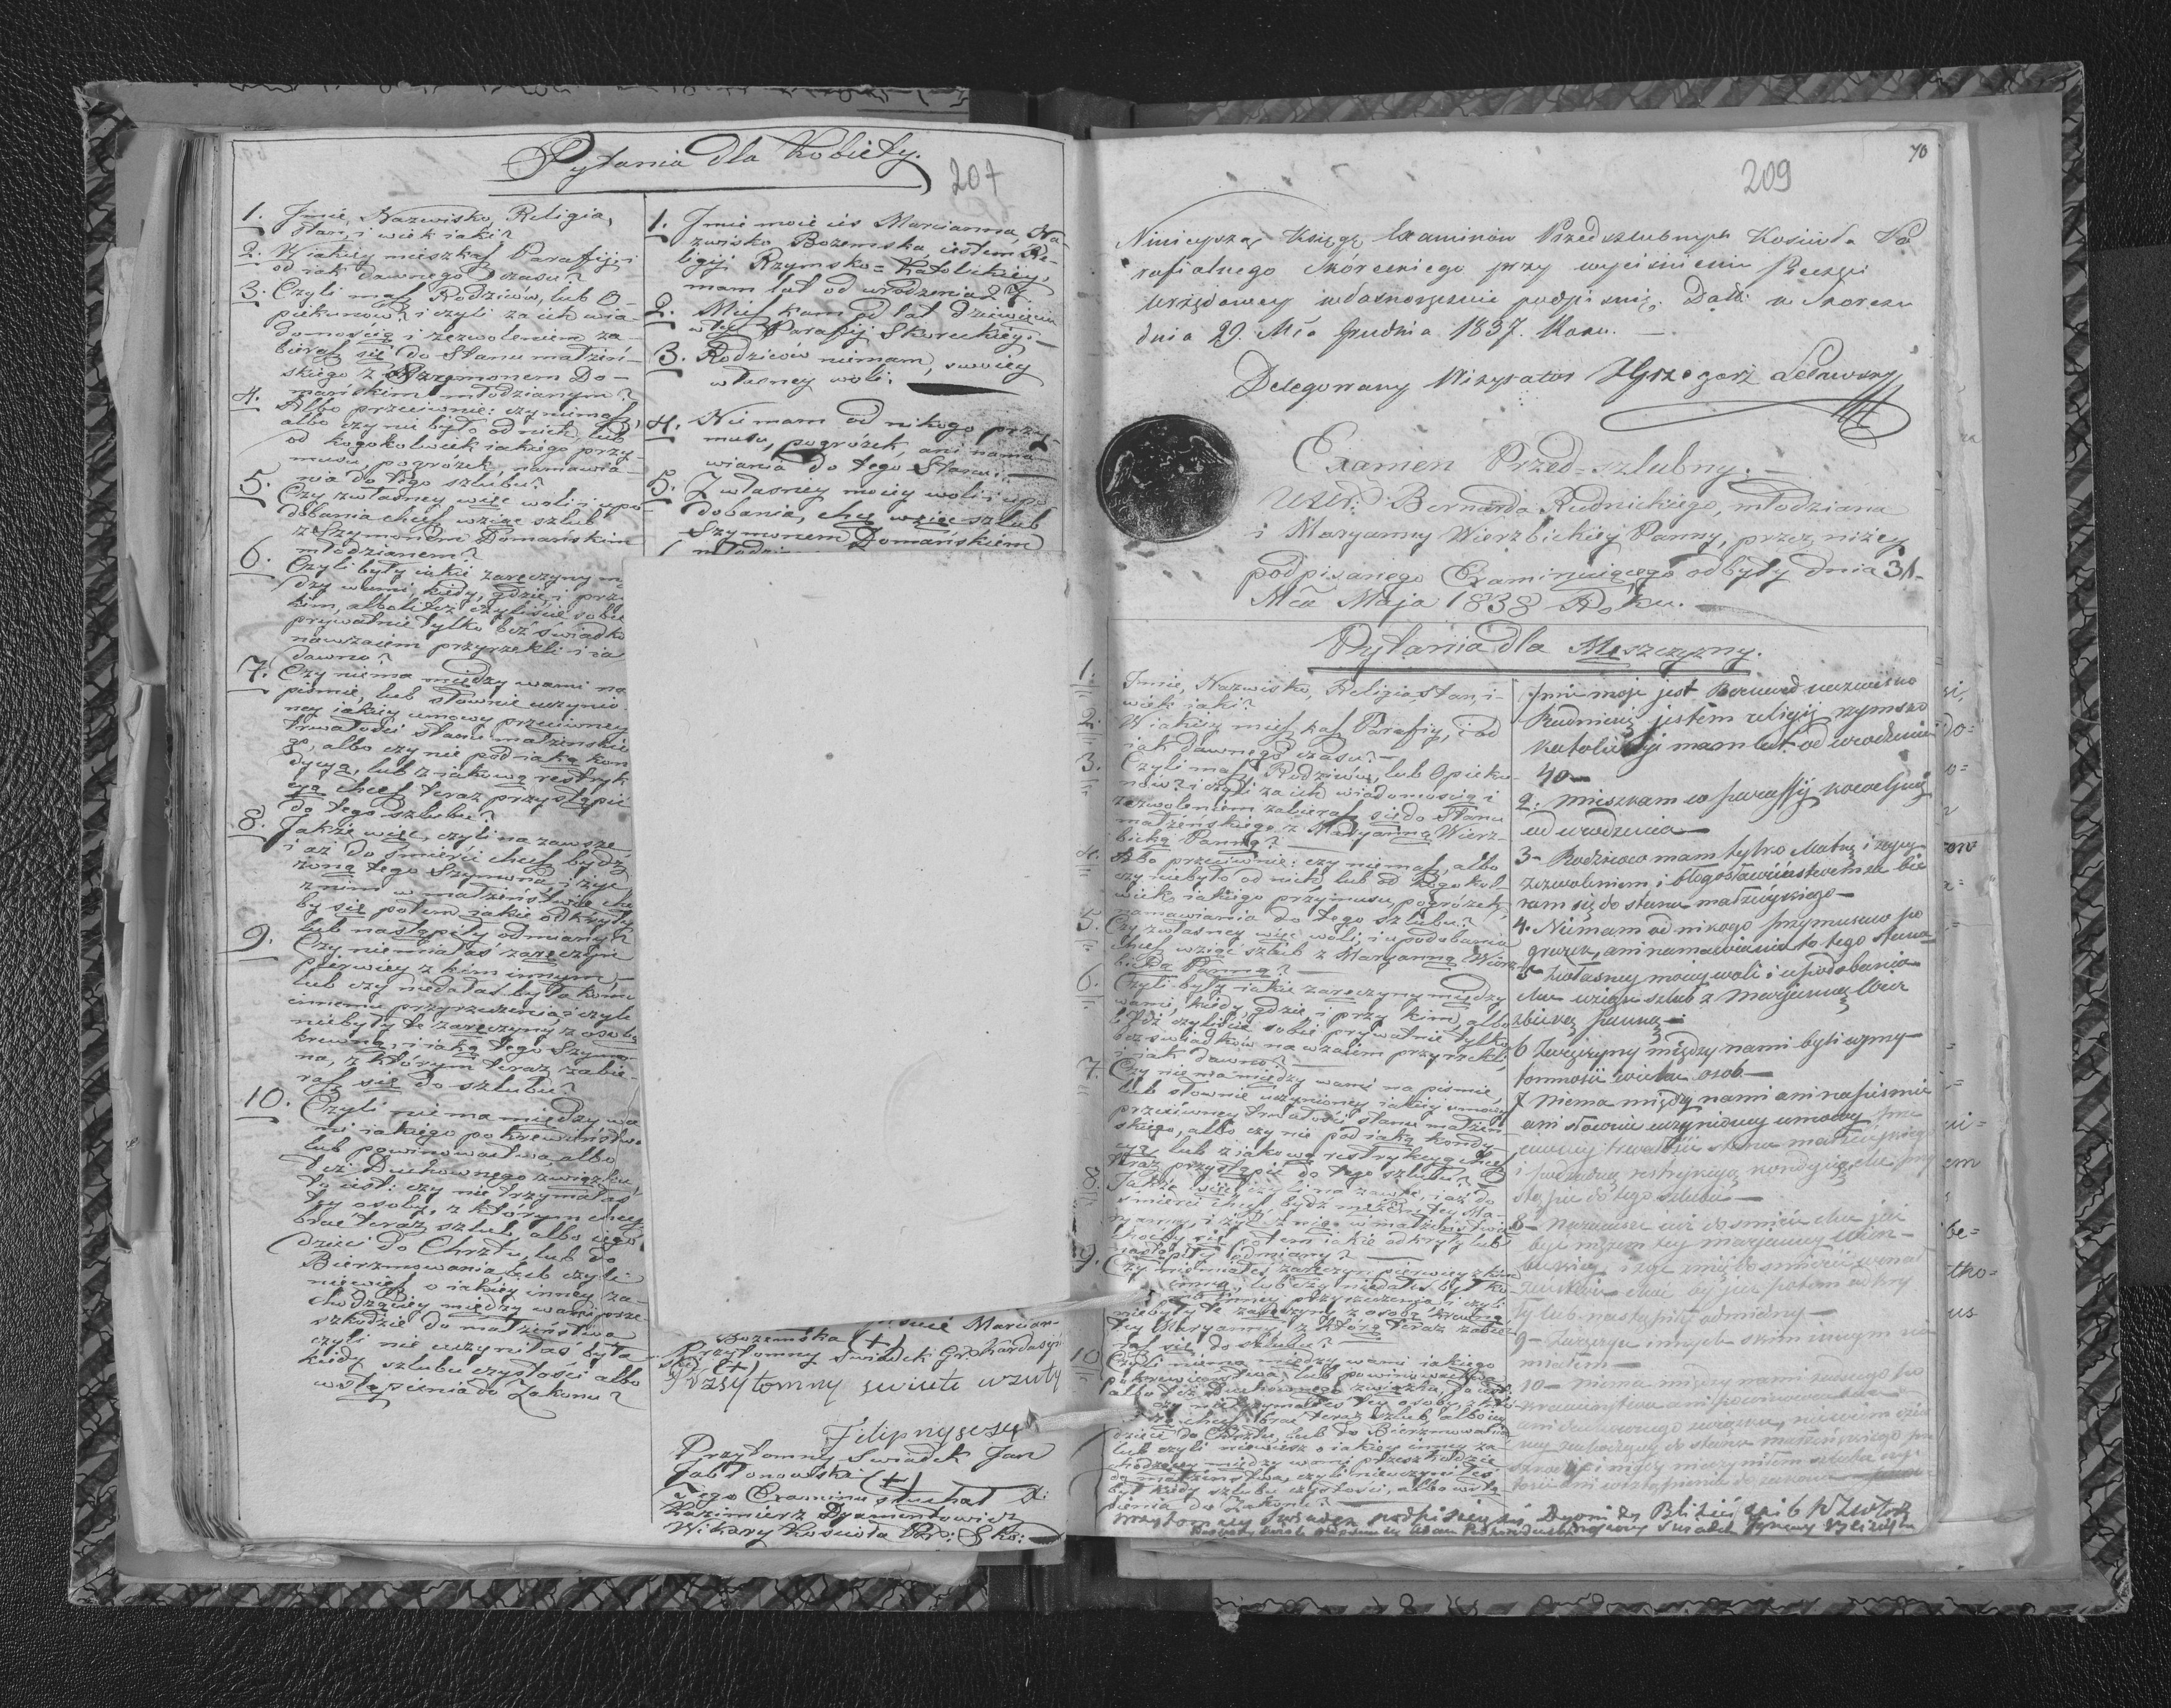 Pytania dla Kobiety.
207
1. Jmie, Nazwisko, Religia,
stan, i wiek iaki?
2. W iakiey mieszkasz Parafiji i
od iak dawnego czasu?
3. Czyli masz Rodziców, lub O-
piekunów? i czyli za ich wia-
domością i zezwoleniem za-
bierasz się do Stanu małżeń-
skiego z Szymonem Do-
mańskim młodzianym?
4. Albo przeciwnie: czy nimasz,
albo czy nie było od nich, lub
od kogokolwiek iakiego przy-
musu, pogróżek, namawia-
nia do tego szlubu?
5. Czy zwłasney więc woli i upo-
dobania chcesz wziąć szlub
z Szymonem Domańskim
młodzianem?
6. Czyli były iakie zaręczyny mię
dzy wami, kiedy, gdzie i przy
kim, alboli też czyliście sobie
prywatnie tylko bez świadko
nawzaiem przyrzekli i ia
dawno?
7. Czy niema między wami na
piśmie, lub słownie uczynio
ney iakiey umowy przeciwney
trwałości stanu małżeńskie
go, albo czy nie pod iaką kon
dycyą, lub z iakową restryk
cyą chcesz teraz przystąpić
do tego szlubu?
8. Jakże więc, czyli na zawsze
i aż do śmierci chcesz bydź
żoną tego Szymona i żyć
z nim w małżeństwie cho
by się potem iakie odkryły
lub nastąpiły odmiany?
9. Czy niemiałaś zaręczyn
pierwiey z kim innym,
lub czy niedałaś było komu
innemu przyrzeczenia, i czyli
niebyły te zaręczyny z osobą
krewną, i iaką tego Szymo-
na, z którym teraz zabie-
rasz się do szlubu?
10. Czyli niema między wa
mi iakiego pokrewieństwa
lub powinowactwa, albo
też Duchownego związku,
to iest: czy nie trzymałaś
tey osoby, z którym chcesz
brać teraz szlub, albo iego
dzieci do Chrztu, lub do
Bierzmowania, lub czyli
niewiesz o iakiey inney za-
chodzącey między wami prze-
szkodzie do małżeństwa
czyli nie uczyniłaś była
kiedy szlubu czystości albo
wstąpienia do Zakonu?
1. Jmie moie ies Marcianna, Na-
zwisko Bozemska, iestem Re-
ligij Rzymsko=Katolickiey,
mam lat od urodzenia 27
2. Mieszkam od lat dziewięciu
w tey Parafij Skoreckiey.
3. Rodziców niemam, swoiey
własney woli.
4. Nie mam od nikogo przy-
musu, pogróżek, ani nama-
wiania do tego Stanu.
5. Z własney moiey woli i upo
dobania, chcę wziąć szlub
Szymonem Domańskiem
Marcian-
Bozemska (+)
Przytomny swiadek Grz. Kardasi
(+)
Przsytomny swiute wzuty
Filip
Przytomny Swiadek Jan
Jabłonowski (+)
Tego Examinu słuchał X:
Kazimierz Dyamentowicz
Wikary Kościoła Par: Sko:
70
209
Ninieyszą Księgę Examinów Przedszlubnych Kościoła Pa
rafialnego Skóreckiego przy wyciśnieniu Pieczęci
Urzędowey własnoręcznie podpisuię. Datt. w Skorcu
dnia 29. Mca Grudnia 1837. Roku.
Delegowany Wizytator X Grzegorz
Examen Przed=szlubny.
Uczci: Bernarda Rudnickiego, młodziana
i Maryanny Wierzbickiéy Panny, przez niżey
podpisanego Examinuiącego odbyty dnia 31.
Mca Maja 1838 Roku.
Pytania dla Męszczyzny.
1. Jmie, Nazwisko, Religia, stan, i-
wiek iaki?
2. W iakiey mieszkasz Parafiy, i od
iak dawnego czasu?
3. Czyli masz Rodziców, lub Opieku-
nów? i czyli za ich wiadomością i
zezwoleniem zabierasz się do Stanu
małżeńskiego z Maryanną Wierz-
bicką Panną?
4. Albo przeciwnie: czy niemasz, albo
czy niebyło od nich, lub od kogokol-
wiek iakiego przymusu, pogróżek,
namawiania do tego szlubu?
5. Czy zwłasney więc woli, i upodobania
chcesz wziąć szlub z Maryanną Wierz
bicką Panną?
6. Czyli były iakie zaręczyny między
wami, kiedy, gdzie i przy kim, albo
też czyliście sobie prywatnie tylko
bez swiadków nawzaiem przyrzekli,
i iak dawno?
7. Czy nie ma między wami na piśmie,
lub słownie uczynioney iakiey umowy
przeciwney trwałości stanu małżeń
skiego, albo czy nie pod iaką kondy
cyą, lub z iakową restrykcyą chcesz
teraz przystąpić do tego szlubu?
8. Jakże więc, czyli na zawsze, i aż do
śmierci chcesz bydź mężem tey Ma-
ryanny, i żyć z nią w małżeństwie
choćby się potem iakie odkryły lub
nastąpiły odmiany?
9. Czy niemiałeś zaręczyn pierwiey z kim
innym, lub czy niedałeś był ko-
mu inney przyrzeczenia, i czyli
niebyły te zaręczyny z osobą krewną
tey Maryanny, z którą teraz zabie-
rasz się do szlubu?
10 Czyli niema między wami iakiego
pokrewieństwa, lub powinowactwa
albo też Duchownego związku, to iest:
czy nie trzymałeś tey osoby, z któ-
rą chcesz brać teraz szlub, albo iey
dzieci do Chrztu, lub do Bierzmowania
lub czyli niewiesz o iakiey inney za
chodzącey między wami przeszkodzie
do małżeństwa, czyli nieuczyniłeś
był kiedy szlubu czystości, albo wstą
pienia do Zakonu?
Jmie moje jest Bernard nazwisko
Rudnicki jestem religij rzymsko
katolickiyi mam lat od urodzenia
40
2. Mieszkam w parafij
od urodzenia
3- Rodziców mam tylko Matkę i zijey
zezwoleniem i błogosławieństwem za bie
ram się do stanu małżeńskiego
4. Niemam od nikogo przymusu po
gruzek, ani namawiania do tego stanu
5- Zwłasney moiey woli i upodobania
chce wziąść szlub z Maryanną Wier
zbicką panną
6 Zaręczyny między nami byli w przy-
tomności wielu osob
7 Niema między nami ani na piśmie
ani słownie uczynioney umowy prze
ciwney trwałości stanu małżeńskiego
i pod żadną restrykcyą, kondycią chcę przy
stąpić do tego szlubu
8- Nazawsze aż do smierci chcę
być mężem tey Maryanny Wierz-
bickiey i żyć z nią do smierci w mał
zeństwie choć by się potem odkry
ły lub nastąpiły odmiany
9- Zaręczyn innych skim innym nie
miałem
10- Niema między nami żadnego po
krewieństwa ani powinowactwa
ani duchownego związku, niewiem o
przytomny Swiadek podpisuię się